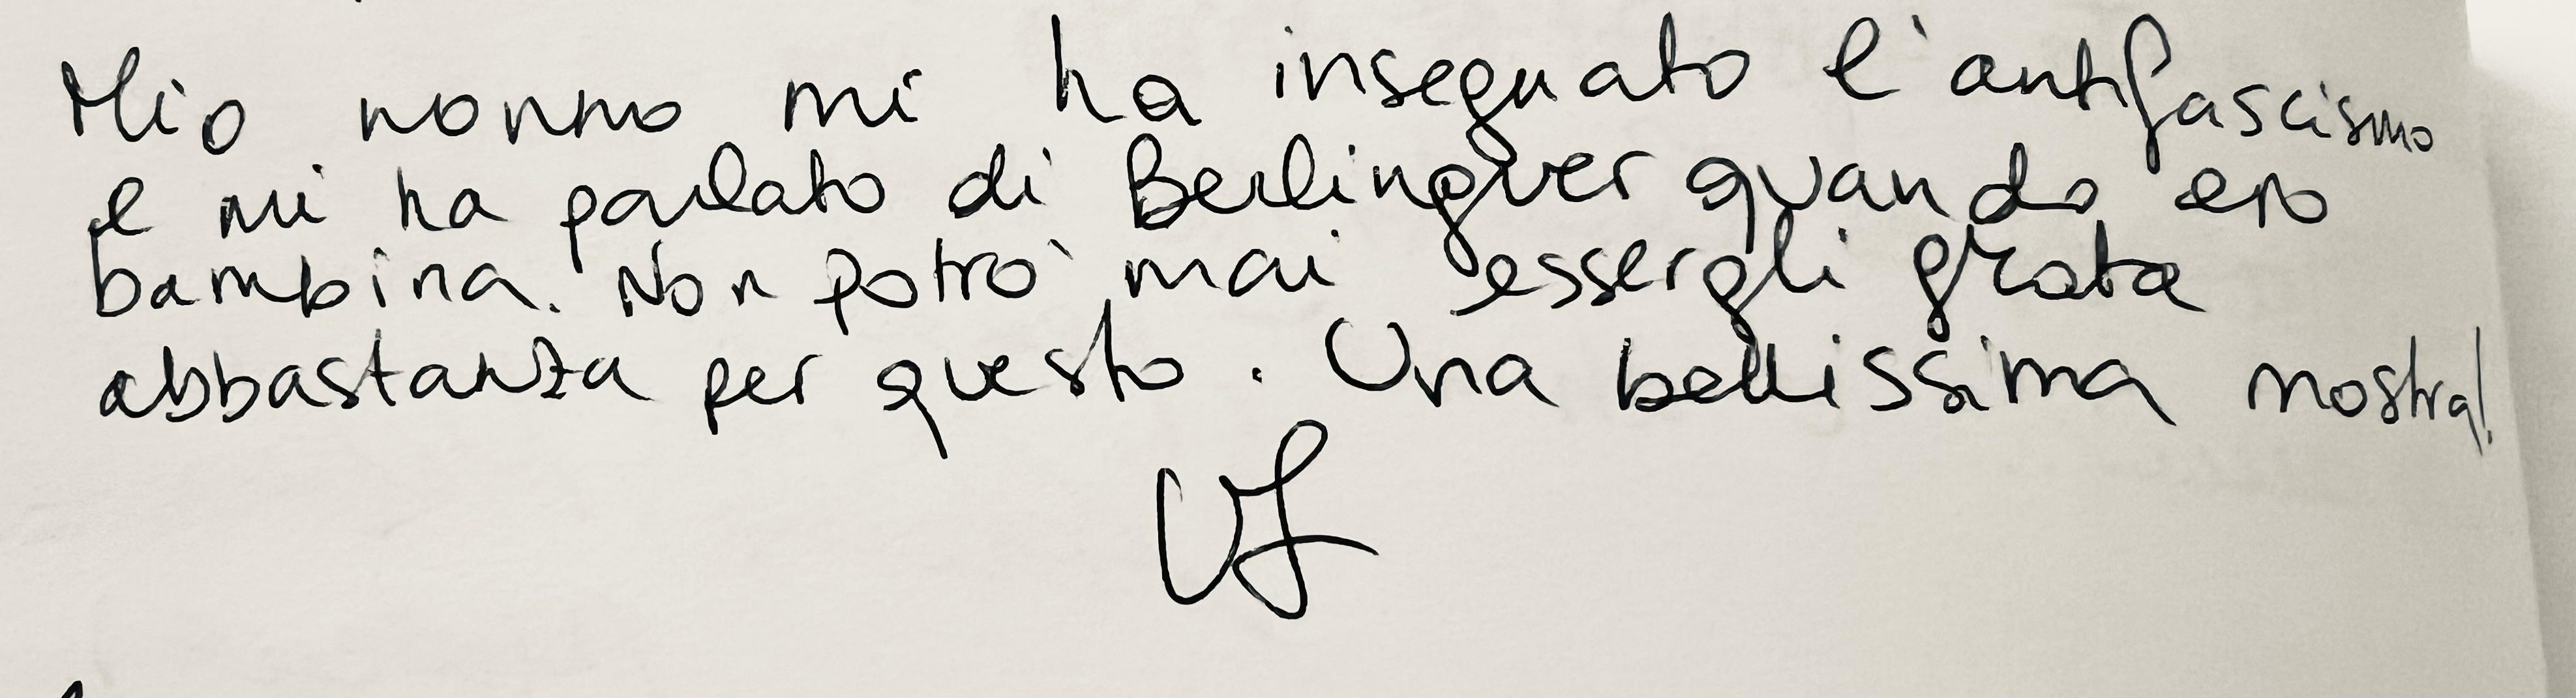 Mio nonno mi ha insegnato l'antifascismo
e mi ha parlato di Berlinguer quando ero
bambina. Non potrò mai essergli grata
abbastanza per questo. Una bellissima mostra!